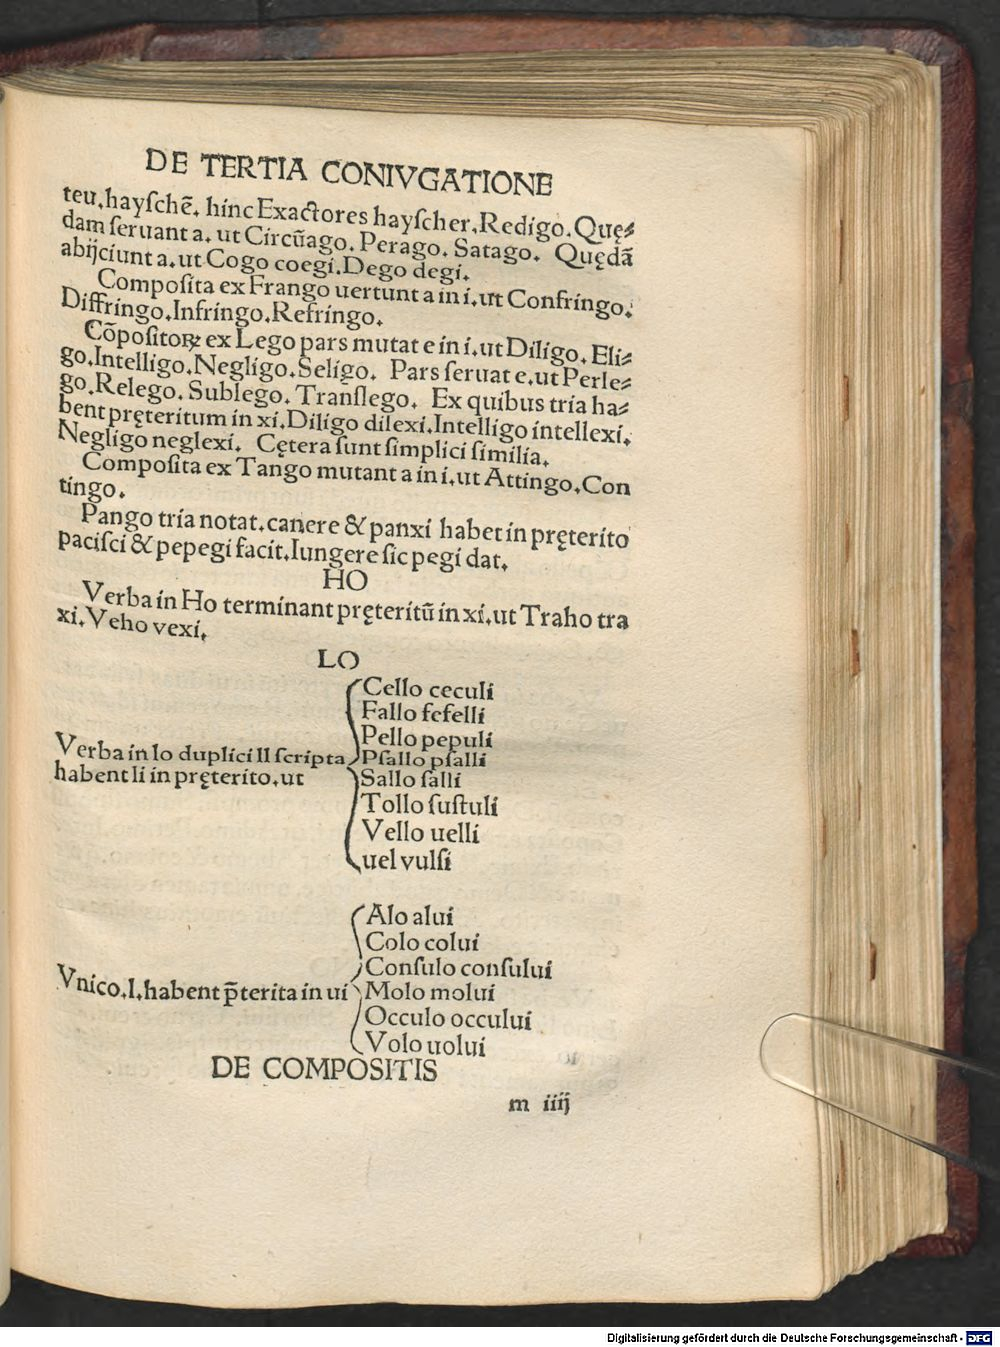 DE TERTIA CONIVGATIONE
teu. hayſchē. hinc Exactores hayſcher. Redigo. Quę⸗
dam ſeruant a. ut Circūago. Perago. Satago. Quędā
abijciunt a. ut Cogo coegi. Dego degi.
Compoſita ex Frango uertunt a in i. ut Confringo.
Diffringo. Infringo. Refringo.
Cōpoſitoꝝ ex Lego pars mutat e in i. ut Diligo. Eli⸗
go. Intelligo. Negligo. Seligo. Pars ſeruat e. ut Perle⸗
go. Relego. Sublego. Tranſlego. Ex quibus tria ha⸗
bent pręteritum in xi. Diligo dilexi. Intelligo intellexi.
Negligo neglexi. Cętera ſunt ſimplici ſimilia.
Compoſita ex Tango mutant a in i. ut Attingo. Con
tingo.
Pango tria notat. canere & panxi habet in pręterito
paciſci & pepegi facit. Iungere ſic pegi dat.
HO
Verba in Ho terminant pręteritū in xi. ut Traho tra
xi. Veho vexi.
LO
Verba in lo duplici ll ſcripta
habent li in pręterito. ut
Cello ceculi
Fallo fefelli
Pello pepuli
Pſallo pſalli
Sallo ſalli
Tollo ſuſtuli
Vello uelli
uel vulſi
Vnico. l. habent p̄terita in ui
Alo alui
Colo colui
Conſulo conſului
Molo molui
Occulo occului
Volo uolui
DE COMPOSITIS
m iiij
Digitalisierung gefördert durch die Deutsche Forschungsgemeinschaft - DFG